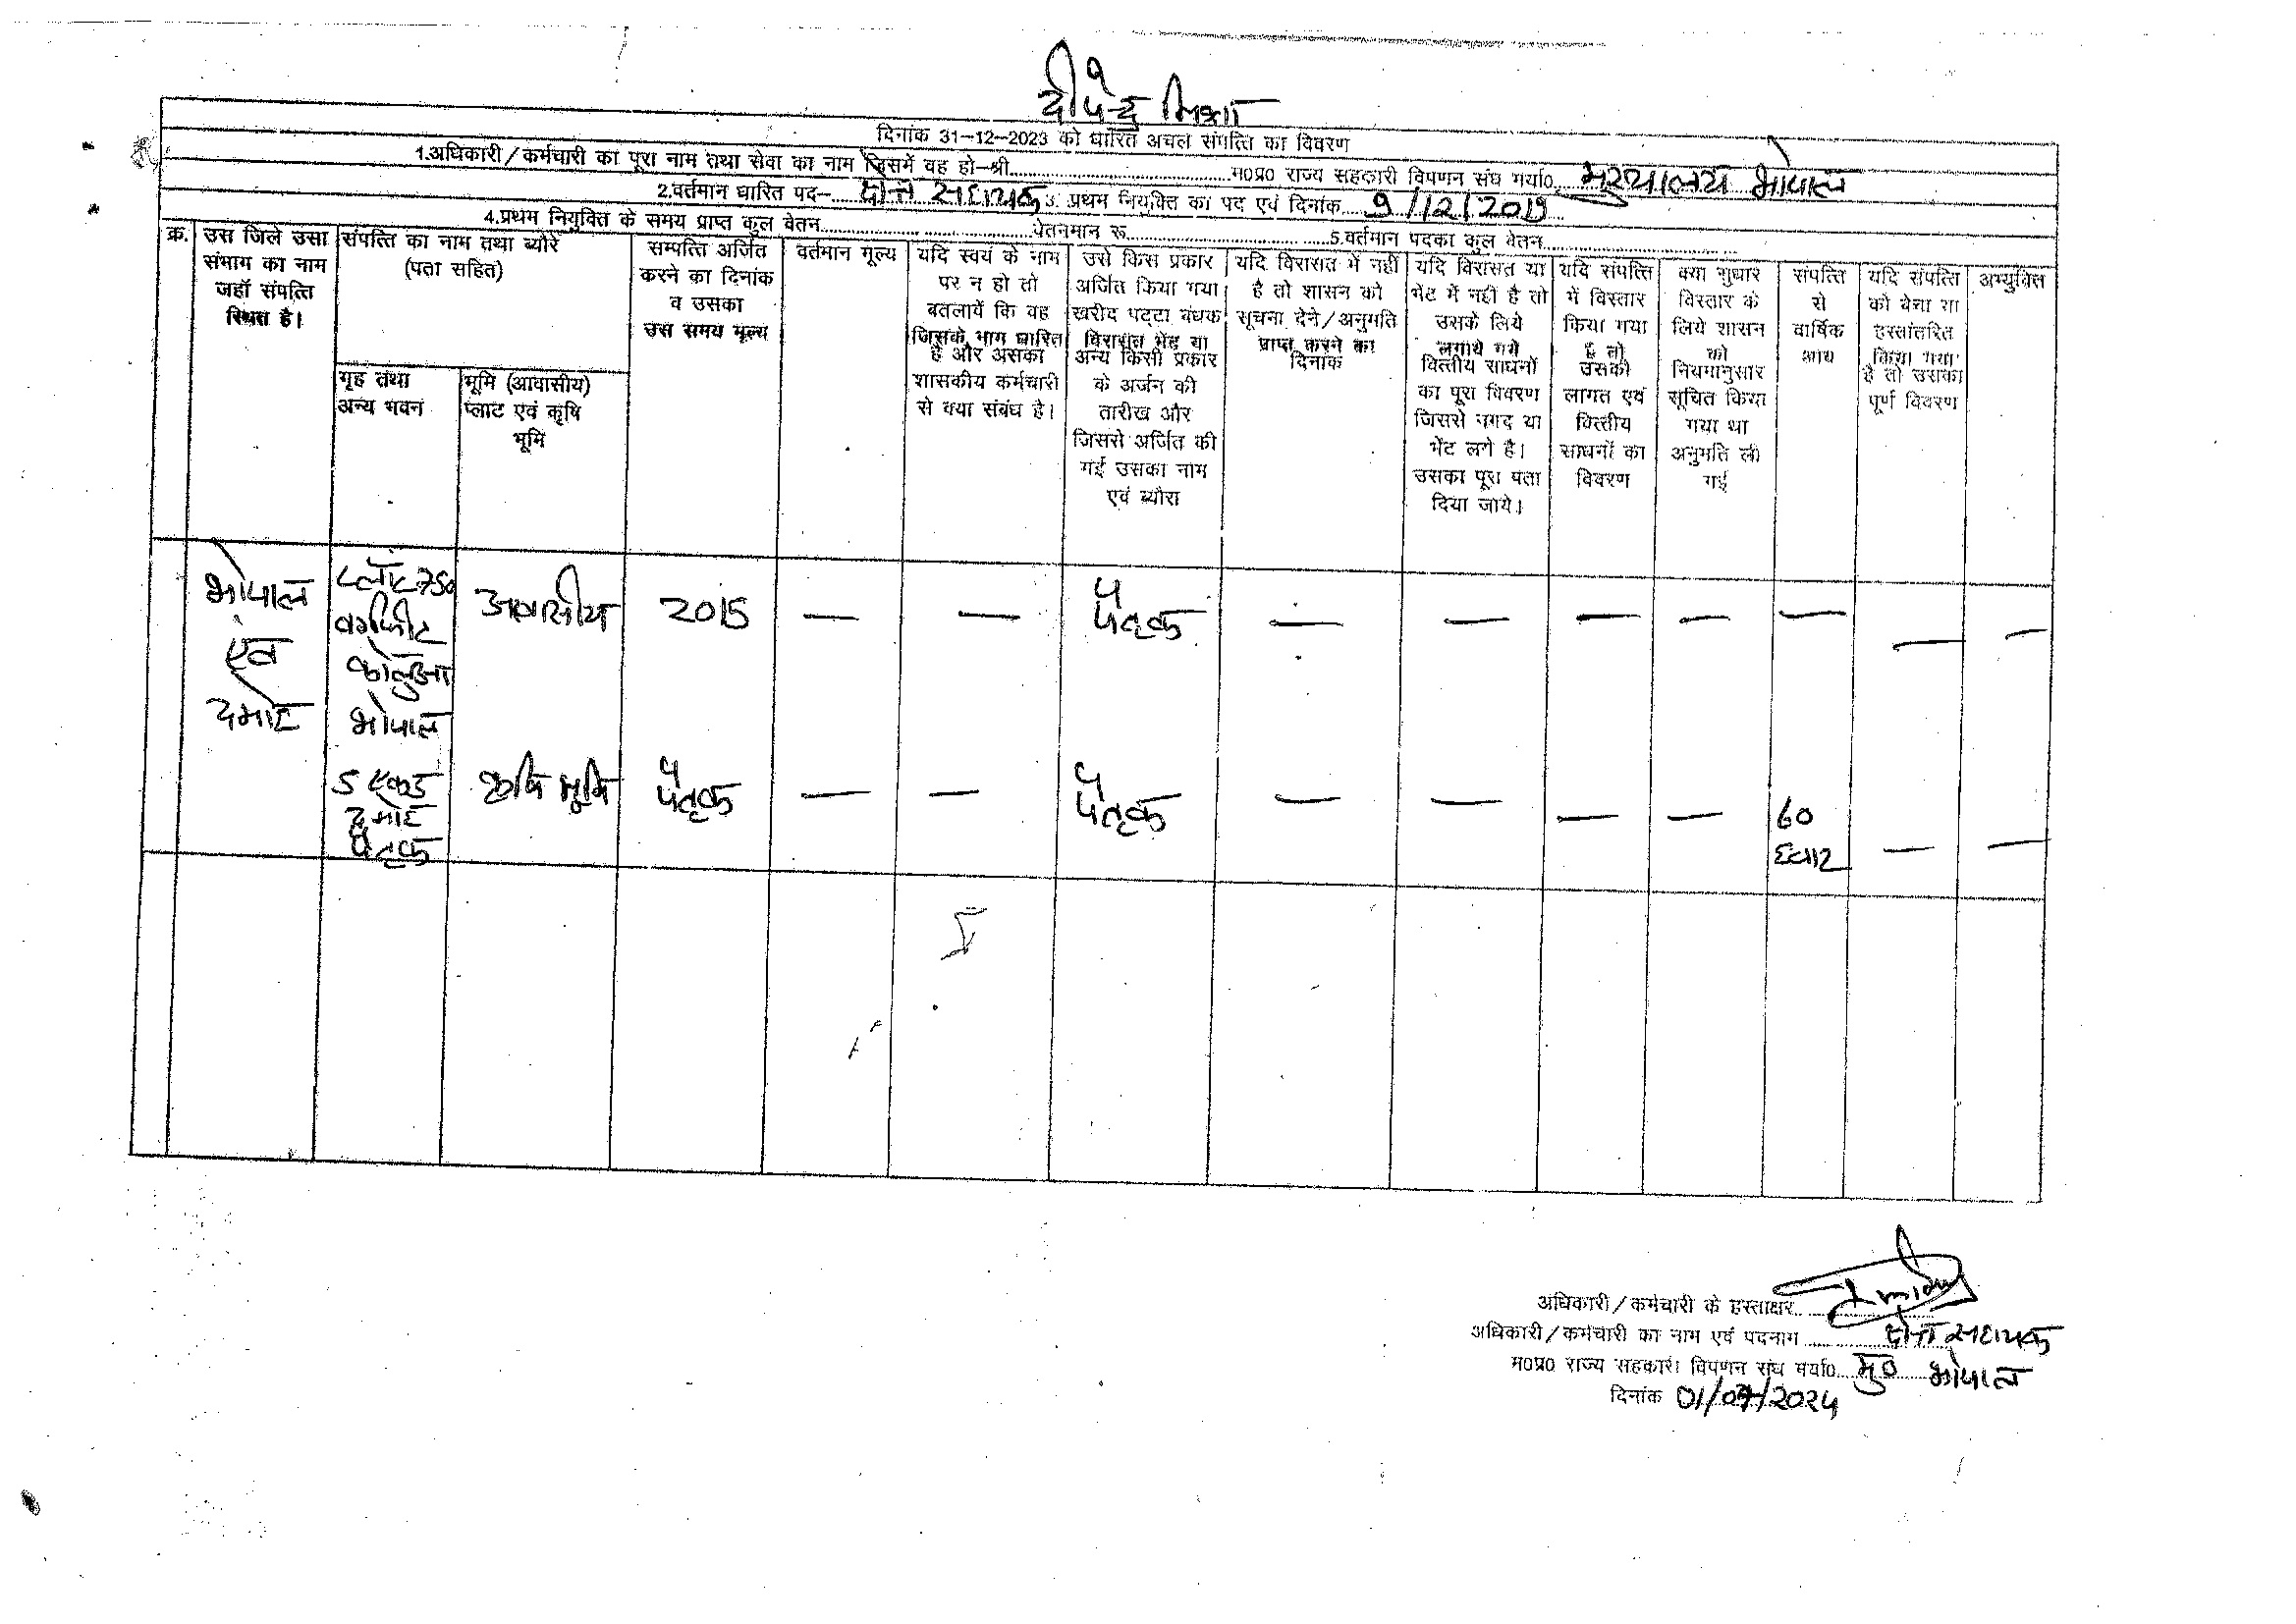 दीपेन्द्र मिश्रा
दिनांक 31-12-2023 को धारित अचल संपत्ति का विवरण
1.अधिकारी/कर्मचारी का पूरा नाम तथा सेवा का नाम जिसमें वह हो-श्री..........म०प्र० राज्य सहकारी विपणन संघ मर्या०. मुख्यालय भोपाल
2.वर्तमान धारित पद-- सहायक 3. प्रथम नियुक्ति का पद एवं दिनांक 9/12/2019
4.प्रथम नियुक्ति के समय प्राप्त कुल वेतन..........वेतनमान रू..........5.वर्तमान पदका कुल वेतन..........
क्र.
उस जिले उसा
संभाग का नाम
जहाँ संपत्ति
स्थित है।
संपत्ति का नाम तथा ब्यौरे
(पता सहित)
गृह तथा
अन्य भवन
भूमि (आवासीय)
प्लाट एवं कृषि
भूमि
सम्पत्ति अर्जित
करने का दिनांक
व उसका
उस समय मूल्य
वर्तमान मूल्य
यदि स्वयं के नाम
पर न हो तो
बतलायें कि वह
जिसके भाग धारित
है और असका
शासकीय कर्मचारी
से क्या संबंध है।
उसे किस प्रकार
अर्जित किया गया
खरीद पट्टा बंधक
विरासत भेंट या
अन्य किसी प्रकार
के अर्जन की
तारीख और
जिससे अर्जित की
गई उसका नाम
एवं ब्यौरा
यदि विरासत में नहीं
है तो शासन को
सूचना देने/अनुमति
प्राप्त करने का
दिनांक
यदि विरासत या
भेंट में नहीं है तो
उसके लिये
लगाये गये
वित्तीय साधनों
का पूरा विवरण
जिससे नगद या
भेंट लगे है।
उसका पूरा पता
दिया जाये।
यदि संपत्ति
में विस्तार
किया गया
है तो
उसकी
लागत एवं
वित्तीय
साधनों का
विवरण
क्या सुधार
विस्तार के
लिये शासन
को
नियमानुसार
सूचित किया
गया था
अनुमति ली
गई
संपत्ति
से
वार्षिक
आय
यदि संपत्ति
को बेचा या
हस्तांतरित
किया गया
है तो उसका
पूर्ण विवरण
अभ्युक्ति
भोपाल
एवं
दमोह
प्लॉट 750
वर्गफीट
कोलुआ
भोपाल
आवासीय
2015
—
—
पैतृक
—
—
—
—
—
—
—
5 एकड
दमोह
पैतृक
कृषि भूमि
पैतृक
—
—
पैतृक
—
—
—
—
60
हजार
—
—
अधिकारी/कर्मचारी के हस्ताक्षर..........
अधिकारी/कर्मचारी का नाम एवं पदनाम .......... सहायक
म०प्र० राज्य सहकारी विपणन संघ मर्या०. मु० भोपाल
दिनांक 01/07/2024